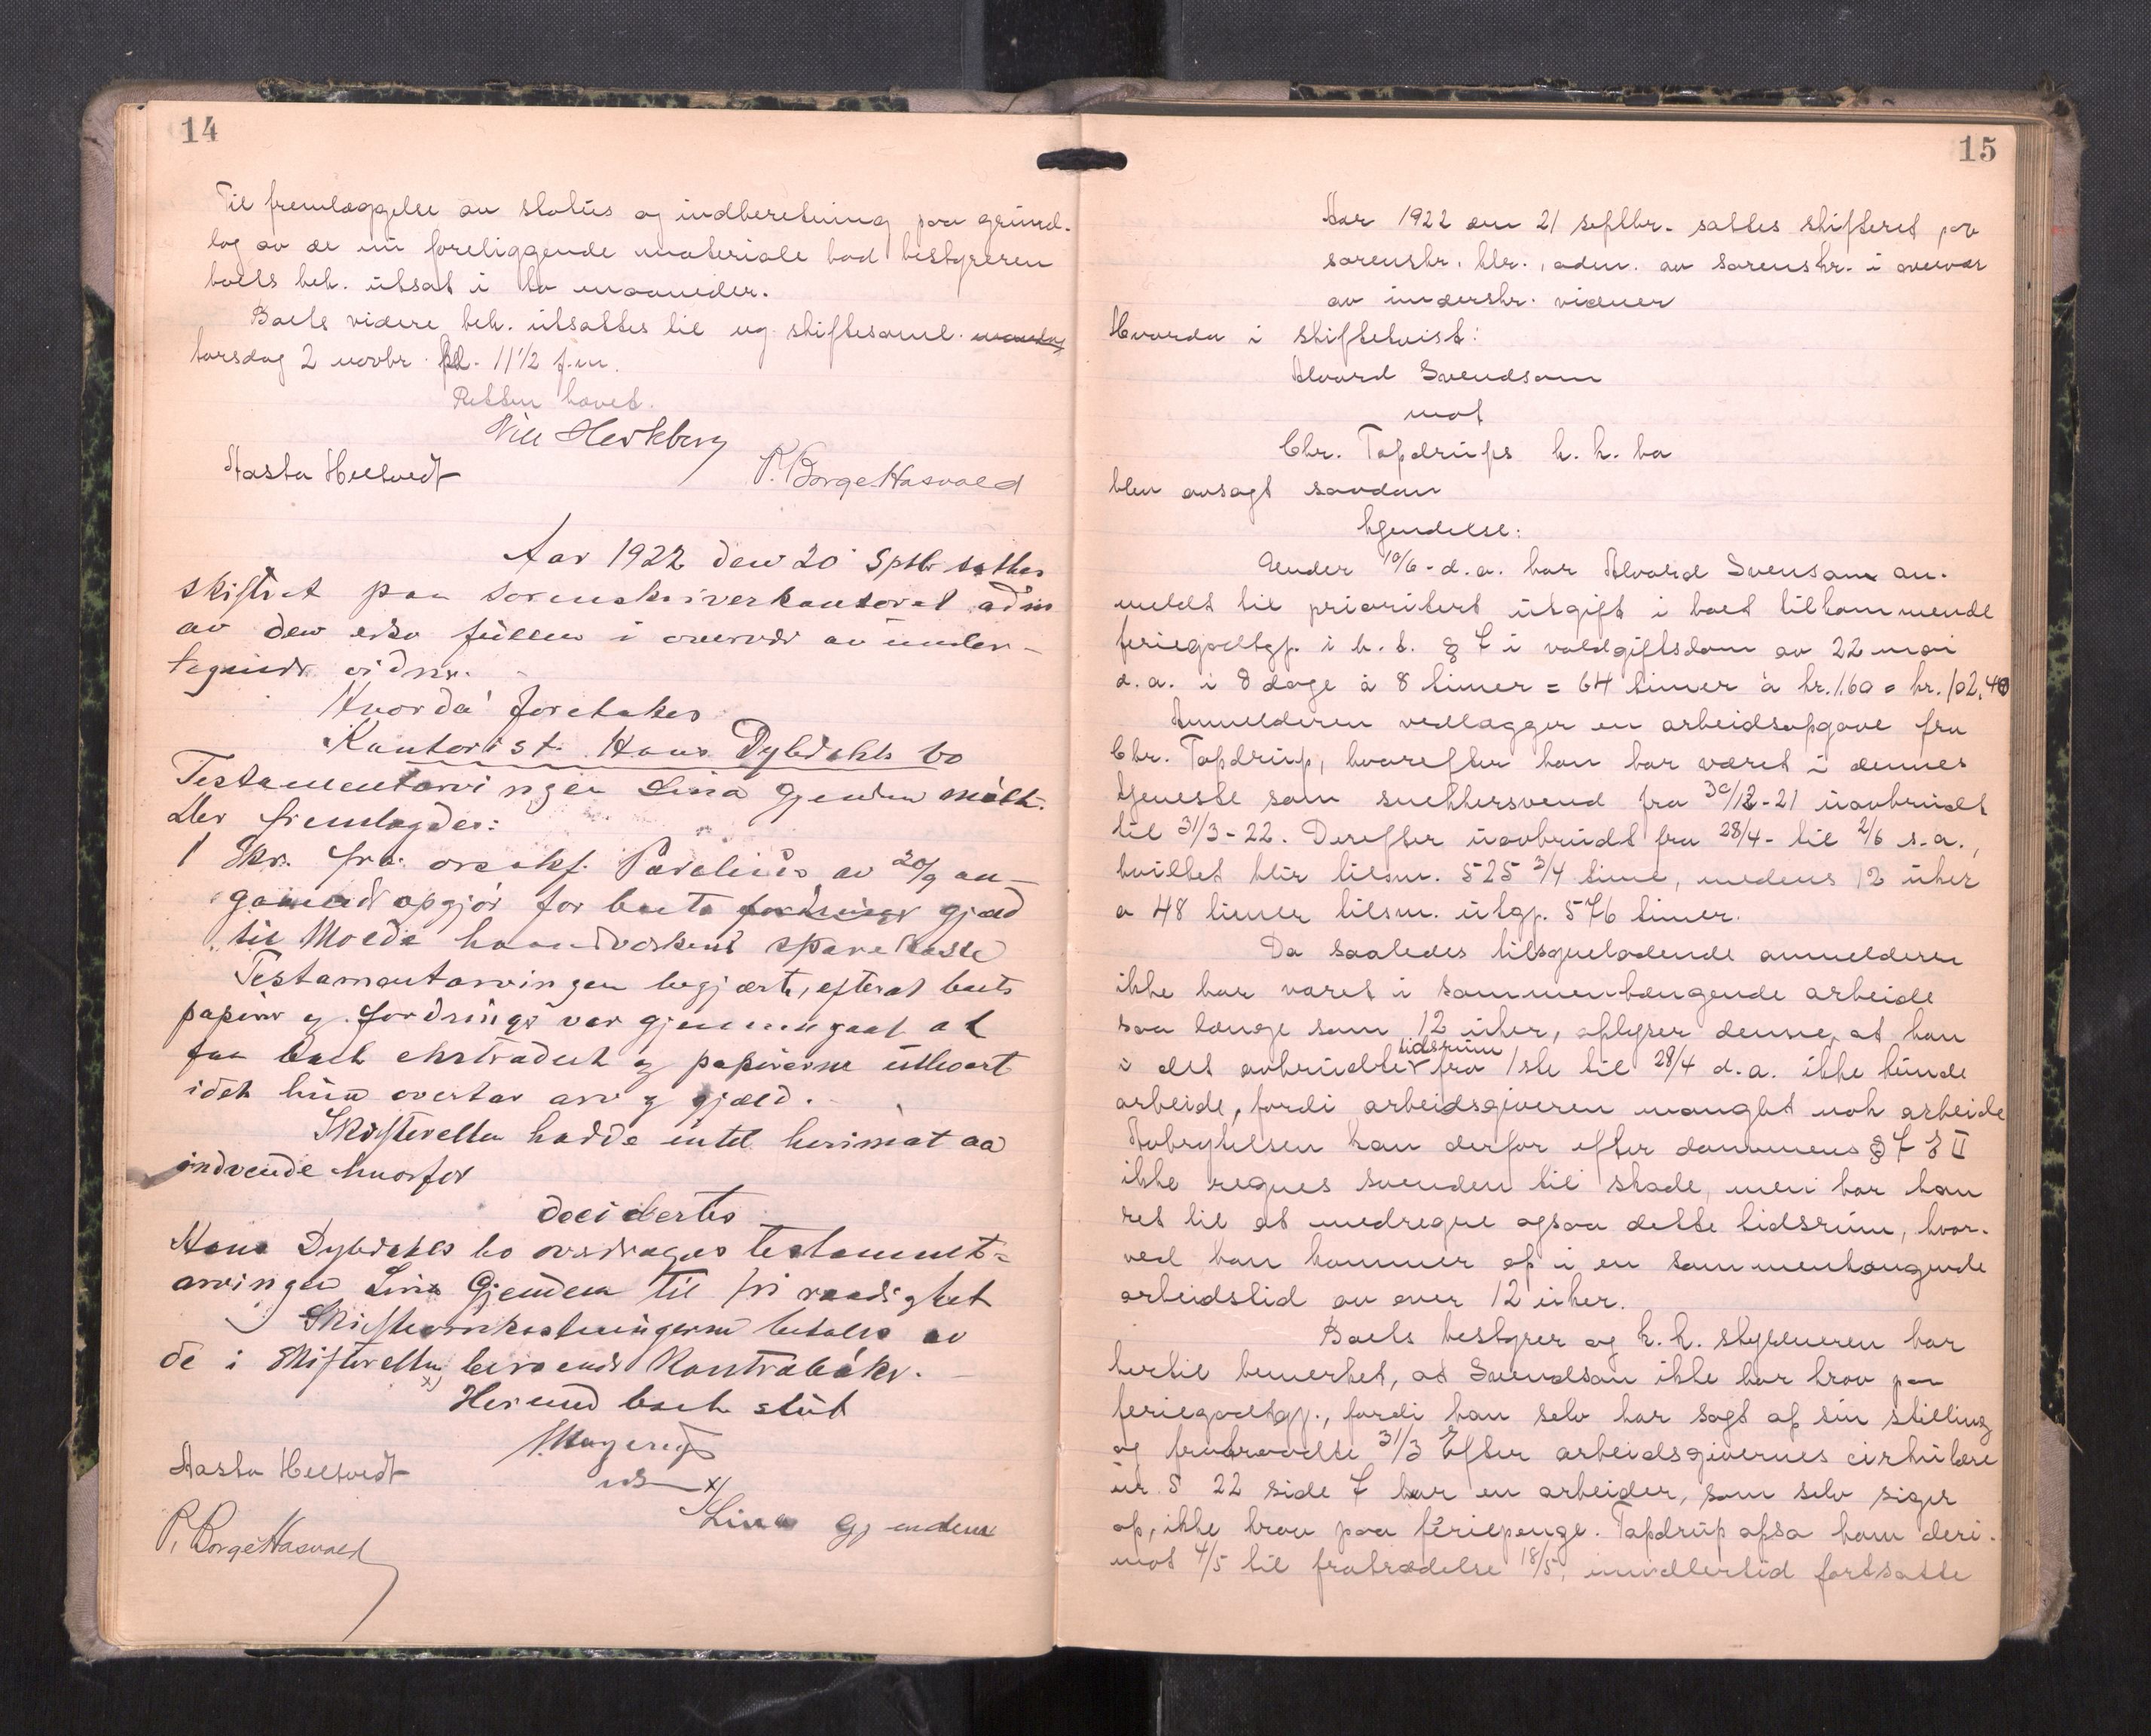 14
Til fremlæggelse av status og indberetning paa grund-
lag av de nu foreliggende materiale bad bestyreren
boets beh. utsat i to maaneder.
Boets videre beh. utsattes til ny skiftesaml. mandag
torsdag 2 novbr. kl. 11 1/2 f.m.
Retten hævet.
Aasta Heltvedt
P. Borge Hasvold
Aar 1922 den 20 Sptb sattes
skiftret paa sorenskriverkontoret adm
av den edsv fullm i overvær av under-
tegnede vidner. -
Hvorda foretokes
Kontorist Hans Dybdahls bo
Testamentarvingen Lina Gjendem møtte.
Der fremlagdes:
1 Skr. fra orsakf. Parelius av 20/9 an-
gaaende opgjør for boets fordringer gjæld
til Molde haandverkers sparekasse
Testamentarvingen begjærte, efterat boets
papirer og fordringer var gjennemgaat at
faa boet ekstradert og papirerne utlevert
idet hun overtar arv og gjæld. -
Skifteretten hadde intet herimot aa
indvende hvorfor
decidertes
Hans Dybdahls bo overdrages testament=
arvingen Lina Gjendem til fri raadighet
Skifteomkostningerne betales av
de i Skifteretten beroende Kontrabøker. -
x)
Hermed boet slut
x/
Lina Gjendem
Aasta Heltvedt
P. Borge Hasvold
15
Aar 1922 den 21 septbr. sattes skifteret paa
sorenskr. ktr., adm. av sorenskr. i overvær
av underskr. vidner
Hvorda i skiftetvist:
Alvard Svendsen
mot
Chr. Tapdrups k. k. bo
blev avsagt saadan
kjendelse:
Under 10/6 - d.a. har Alvard Svensen an-
meldt til prioritert utgift i boet tilkommende
feriegodtgj. i h. t. § 7 i voldgiftsdom av 22 mai
d.a. i 8 dage à 8 timer = 64 timer à kr. 1.60 = kr. 102,40
Anmelderen vedlægger en arbeidsopgave fra
Chr. Tapdrup, hvorefter han har været i dennes
tjeneste som snekkersvend fra 30/12-21 uavbrudt
til 31/3-22. Derefter uavbrudt fra 28/4- til 2/6 s.a.,
hvilket blir tilsm. 525 3/4 time, medens 12 uker
a 48 timer tilsm. utgj. 576 timer.
Da saaledes tilsyneladende anmelderen
ikke har været i sammenhængende arbeide
saa længe som 12 uker, oplyser denne, at han
i det avbrudte tidsrum fra 1ste til 28/4 d.a. ikke kunde
arbeide, fordi arbeidsgiveren manglet nok arbeide
Avbrytelsen kan derfor efter dommens § 7 § II
ikke regnes svenden til skade, men har han
ret til at medregne ogsaa dette tidsrum, hvor-
ved han kommer op i en sammenhængende
arbeidstid av over 12 uker.
Boets bestyrer og k. k. styreren har
hertil bemerket, at Svendsen ikke har krav paa
feriegodtgj., fordi han selv har sagt op sin stilling
og fratraadte 31/3 Efter arbeidsgivernes cirkulære
nr. 5 22 side 7 har en arbeider, som selv siger
op, ikke krav paa feriepenge. Tapdrup opsa ham deri-
mot 4/5 til fratrædelse 18/5, imidlertid fortsatte